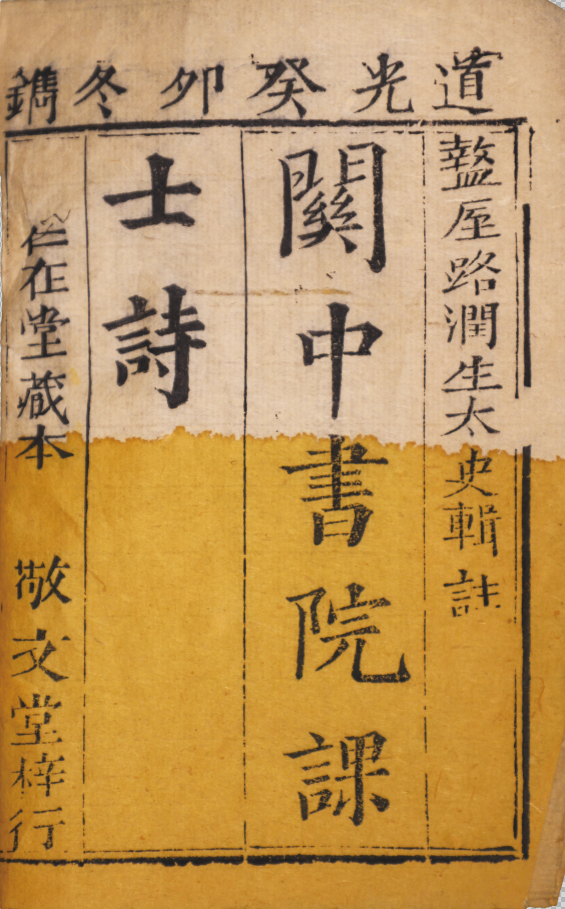 道光癸卯冬鐫
盩厔路潤生太史輯註
關中書院課
士詩
在堂藏本 敬文堂梓行